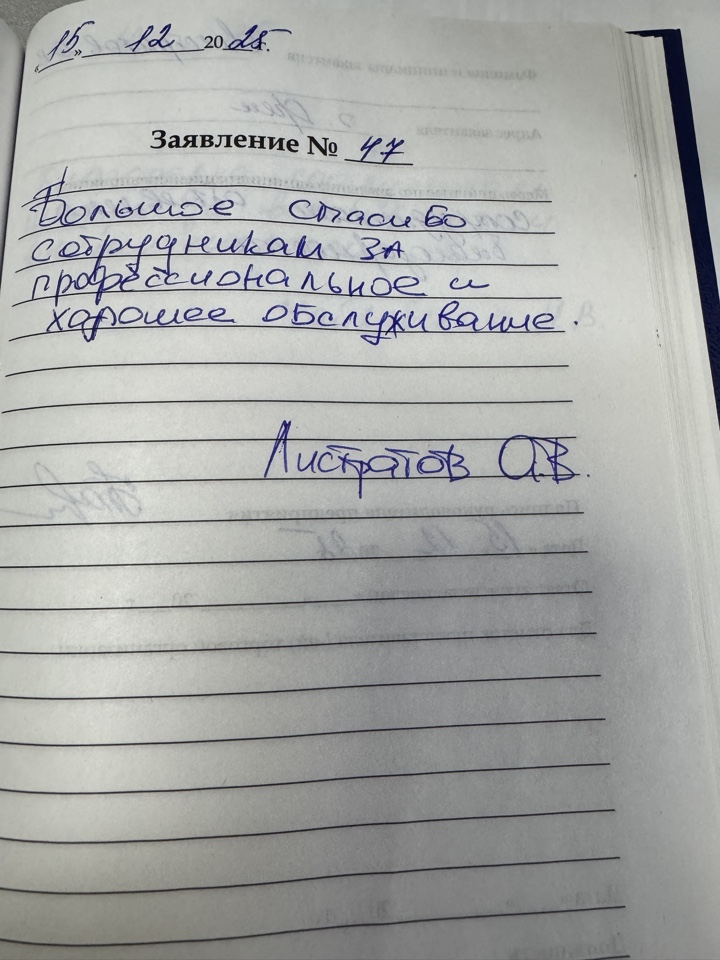 «15» 12 2025г.
Заявление № 47
Большое спасибо
сотрудникам за
профессиональное и
хорошее обслуживание.
Листратов А.В.